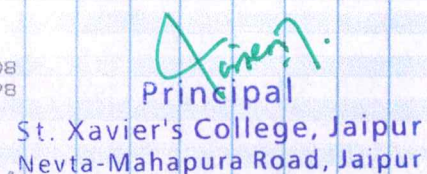 98
98
Principal
St. Xavier's College, Jaipur
Nevta-Mahapura Road, Jaipur